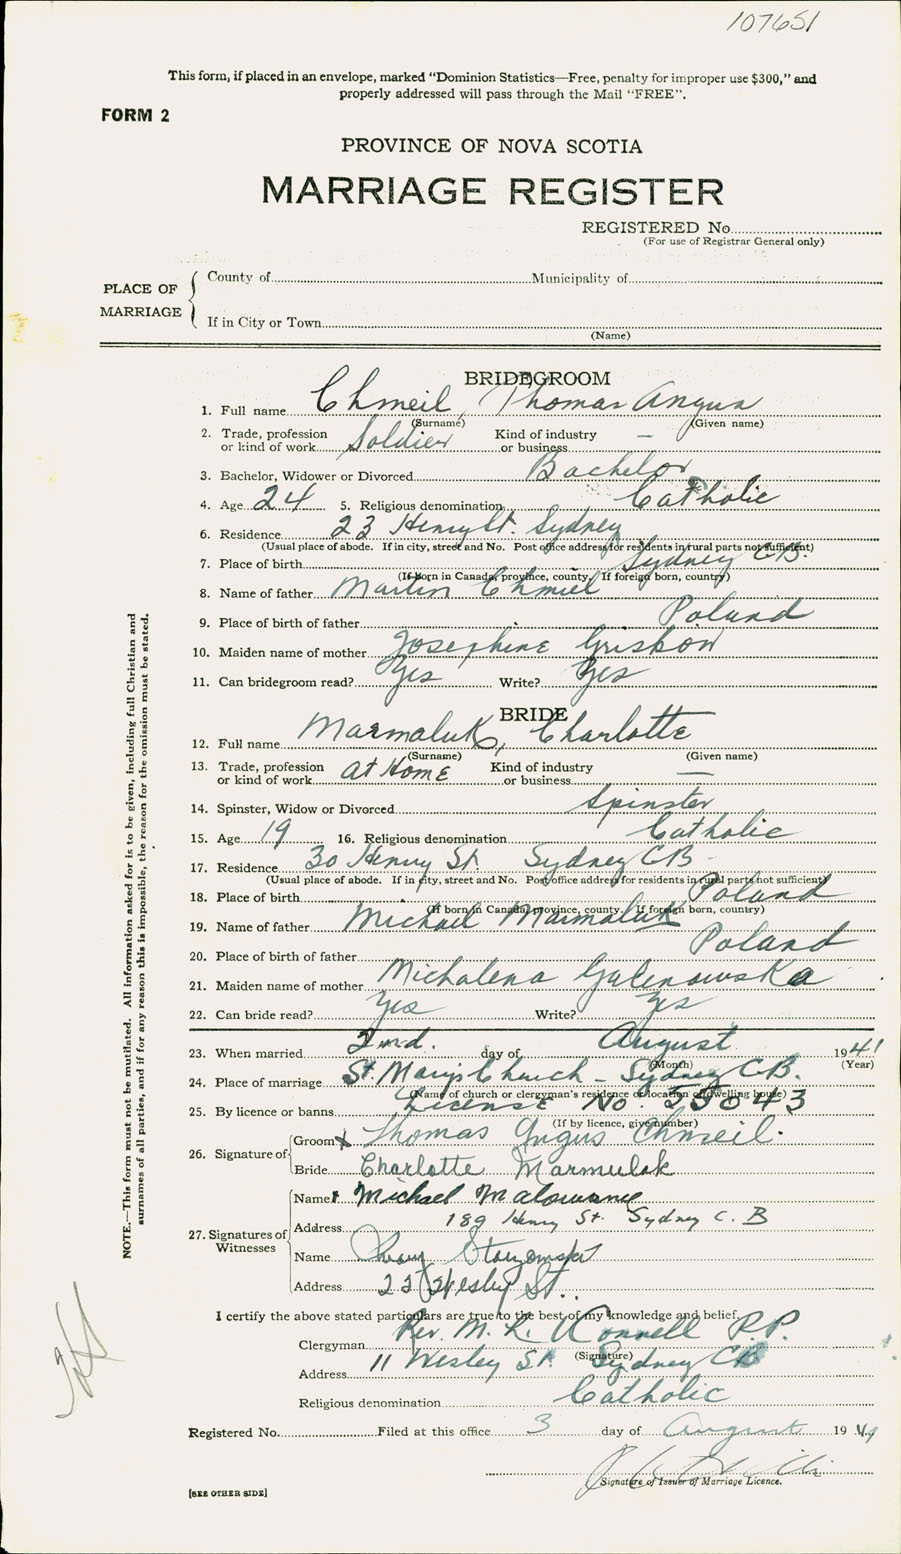 107651
This form, if placed in an envelope, marked "Dominion Statistics—Free, penalty for improper use $300," and
properly addressed will pass through the Mail "FREE".
FORM 2
PROVINCE OF NOVA SCOTIA
MARRIAGE REGISTER
REGISTERED No.
(For use of Registrar General only)
PLACE OF MARRIAGE
County of Municipality of
If in City or Town
(Name)
BRIDEGROOM
1. Full name Chmeil, Thomas Angus
(Surname) (Given name)
2. Trade, profession or kind of work Soldier Kind of industry or business —
3. Bachelor, Widower or Divorced Bachelor
4. Age 24 5. Religious denomination Catholic
6. Residence 23 Henry St. Sydney
(Usual place of abode. If in city, street and No. Post office address for residents in rural parts not sufficient)
7. Place of birth Sydney C.B.
(If born in Canada, province, county. If foreign born, country)
8. Name of father Martin Chmiel
9. Place of birth of father Poland
10. Maiden name of mother Josephine Griskow
11. Can bridegroom read? Yes Write? Yes
BRIDE
12. Full name Marmaluk, Charlotte
(Surname) (Given name)
13. Trade, profession or kind of work At Home Kind of industry or business —
14. Spinster, Widow or Divorced Spinster
15. Age 19 16. Religious denomination Catholic
17. Residence 30 Henry St. Sydney CB
(Usual place of abode. If in city, street and No. Post office address for residents in rural parts not sufficient)
18. Place of birth Poland
(If born in Canada, province, county. If foreign born, country)
19. Name of father Michael Marmaluk
20. Place of birth of father Poland
21. Maiden name of mother Michalena Galenowska
22. Can bride read? Yes Write? Yes
23. When married 2nd. day of August 1941
(Month) (Year)
24. Place of marriage St. Mary's Church - Sydney C.B.
(Name of church or clergyman's residence or location of dwelling house)
25. By licence or banns License No. 55043
(If by licence, give number)
26. Signature of Groom X Thomas Angus Chmeil.
Bride Charlotte Marmulak
27. Signatures of Witnesses
Name Michael
Address 189 Henry St. Sydney C. B
Name
Address 22 Wesley St.
I certify the above stated particulars are true to the best of my knowledge and belief.
Clergyman Rev. M. P.P.
(Signature)
Address 11 Wesley St. Sydney CB
Religious denomination Catholic
Registered No. Filed at this office 3 day of August 1941
Signature of Issuer of Marriage Licence.
[SEE OTHER SIDE]
NOTE.—This form must not be mutilated. All information asked for is to be given, including full Christian and
surnames of all parties, and if for any reason this is impossible, the reason for the omission must be stated.